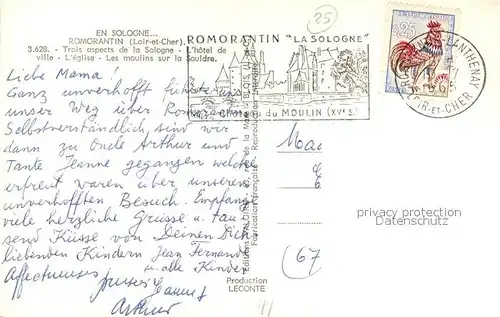 EN SOLOGNE...
ROMORANTIN (Loir-et-Cher).
3.628. - Trois aspects de la Sologne - L'hôtel de
ville - L'église - Les moulins sur la Sauldre.
Liebe Mama!
Ganz unverhofft führte uns
unser Weg über Romorantin
Selbstverständlich sind wir
dann zu Onkle Arthur und
Tante Jeanne gegangen welche
erfreut waren über unseren
unverhofften Besuch. Empfange
viele herzliche Grüsse u. tau
send Küsse von Deinen Dich
liebenden Kindern Jean Fernand
u. alle Kinder
Affectueuses
Jeanne
Arthur
25
ROMORANTIN "LA SOLOGNE"
du MOULIN (XVe S.)
0,25
LANTHENAY
LOIR-ET-CHER
Ma
privacy protection
VWPics
(67
Production
LECONTE